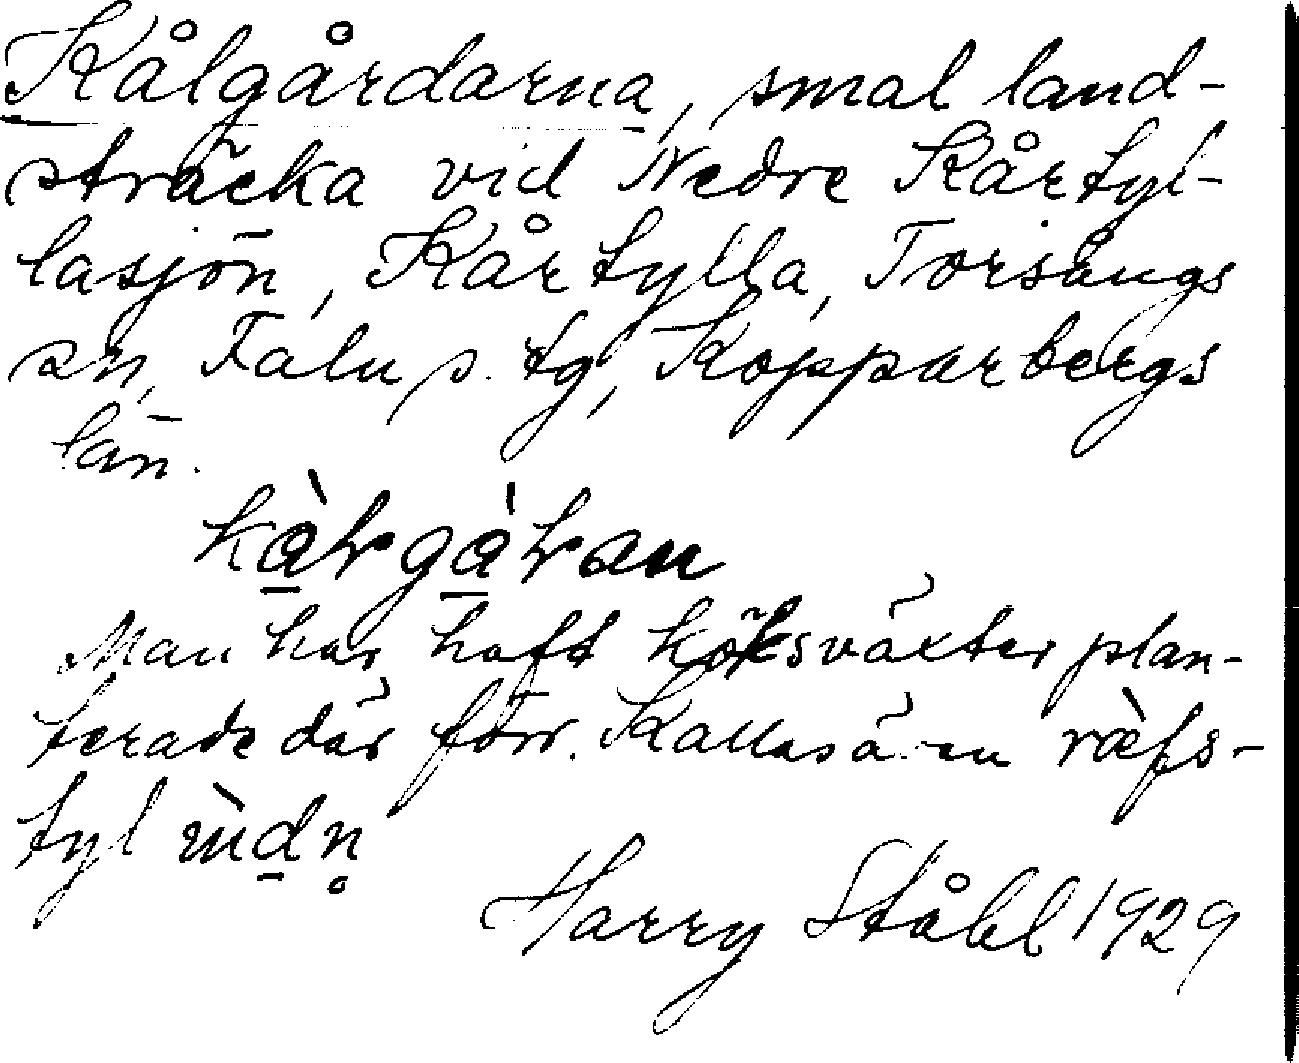 Kålgårdarna, smal land-
sträcka vid Nedre Kårtyl-
lasjön, Kårtylla, Torsångs
sn, Falu s. tg, Kopparbergs
län.
kàrgàran
Man har haft köksväxter plan-
terade där förr. Kallas även ràfs-
tyl
Harry Ståhl 1929